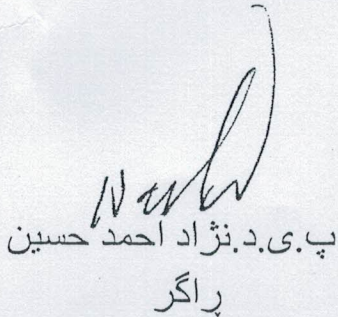 پ.ی.د.نژاد احمد حسین
ڕاگر